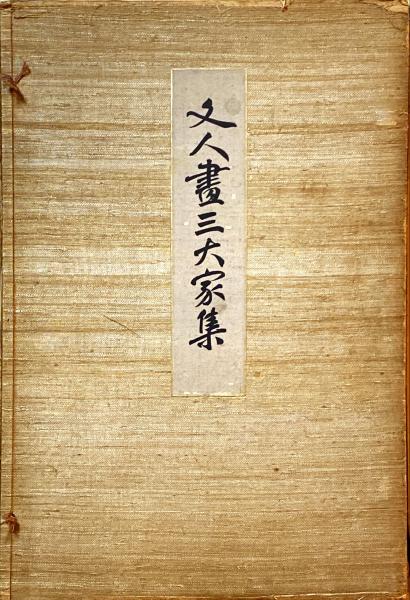 文人畫三大家集